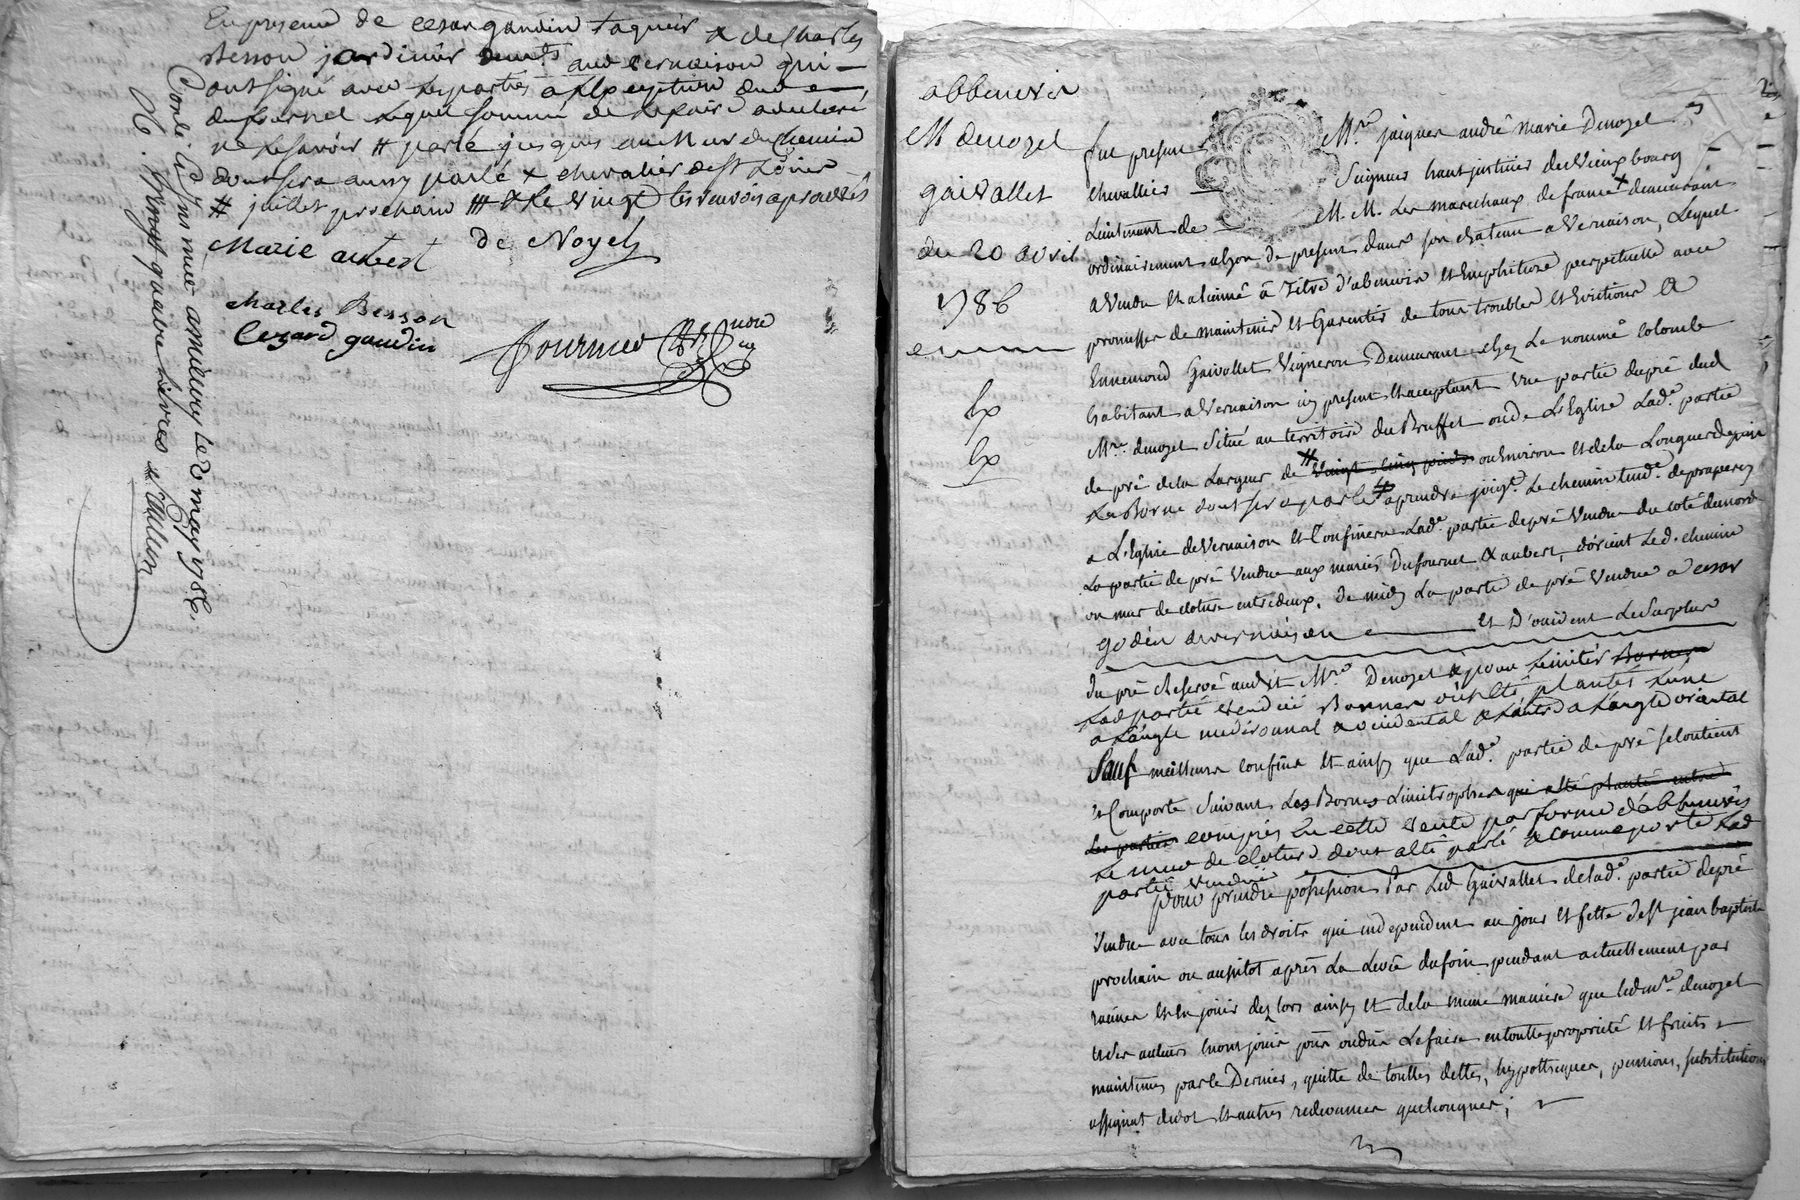 En presence de cesar gaudin taqueir x de Charles
Besson jardinier dem.ts aud vernaison qui
ont signé avec les parties a l'exception dud
dufournet lequel sommé de le faire a declaré
ne le savoir # parlé jusques au Mur du Chemin
dont sera aussy parlé x chevalier de st Loüis
# juillet prochain ## x Le vingt les renvois aprouvés
Marie aubert de Noyel
Charles Besson
Cezard gaudin
Fournier nore
Conlé. & Insinué a le 2 may 1786.
vingt quatre livres
abbenevis
M denozel
gaivallet
du 20 avril
1786
fut present Mre. jacques andré marie Denozel
chevallier Seigneur haut justicier de vieux bourg
Lieutenant de M. M. Les marechaux de france x demeurant
ordinairement a lyon de present dans son chateau a Vernaison, Lequel
a Vendu et alienné à titre d'abenevis et Emphiteose perpetuelle avec
promesse de maintenir et Garentir de tous troubles et Evictions a
Ennemond Gaivallet Vigneron Demeurant chez Le nommé Colomb
habitant a Vernaison icy present et acceptant une partie du pré dud
Mre. denozel Situé au territoire du Buffet ou de L'Eglise Lade. partie
de pré de la Largeur de # vingt cinq pieds ou Environ et de la Longueur depuis
La Borne dont sera parlé # a prendre joigt. Le chemin tendt. de
a L'Eglise de Vernaison et Confinera Lade. partie de pré Vendue du coté de nord
La partie de pré Vendue aux mariés Dufournet & aubert, d'orient Led. chemin
un mur de cloture entredeux. de midy La partie de pré Vendue a cesar
godin a vernaison et D'occident Le Surplus
du pré Reservé audit Mre. Denozel & pour Limiter
Lad partie vendüe Bornes ont été plantés L'une
a L'angle meridionnal & occidental & L'autre a L'angle oriental
Sauf meilleurs confins et ainsy que Lade. partie de pré se contient
et Comporte Suivant Les Bornes Limitrophes qui été planté entre
Les parties compris En cette vente par forme d'abbenevis
Le mur de cloture dont a été parlé & comme porte Lad
partie vendüe
pour prendre possession Par Led Gaivallet de Lade. partie de pré
Vendue avec tous les droits qui en dependent au jour et fette de st jean baptiste
prochain ou aussitot après La Levée du foin pendant actuellement par
racines et en jouir dez lors ainsy et de la meme maniere que led mre. denozel
et ses auteurs en ont joui pû ou dû Le faire en toutte proprieté et fruits
maintenus par le Dernier, quitte de touttes dettes, hypotteques, pensions, substitutions
assignat de dot et autres redevances quelconques;